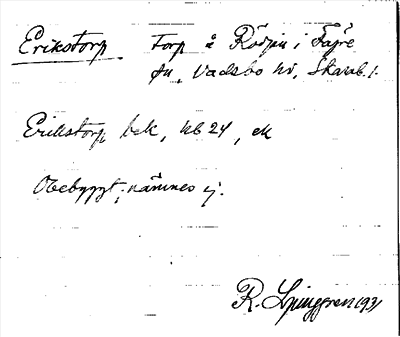 Erikstorp Torp å Rödjan i Fägre
sn, Vadsbo hd, Skarab. l.
Erikstorp bek, hb 24, ek
Obebyggt; nämnes ej.
R. Ljunggren 1931